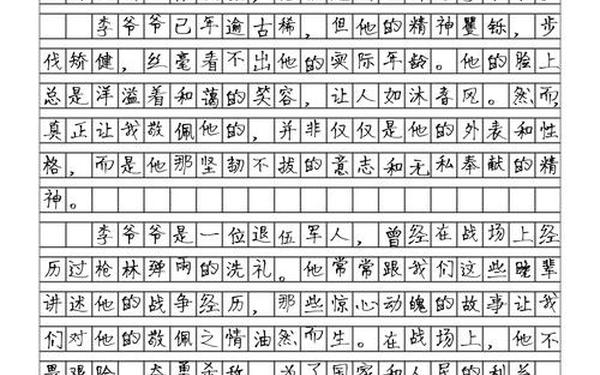 李爷爷已年逾古稀，但他的精神矍铄，步
伐矫健，丝毫看不出他的实际年龄。他的脸上
总是洋溢着和蔼的笑容，让人如沐春风。然而，
真正让我敬佩他的，并非仅仅是他的外表和性
格，而是他那坚韧不拔的意志和无私奉献的精
神。
李爷爷是一位退伍军人，曾经在战场上经
历过枪林弹雨的洗礼。他常常跟我们这些晚辈
讲述他的战争经历，那些惊心动魄的故事让我
们对他的敬佩之情油然而生。在战场上，他不
畏艰险，奋勇杀敌，为了国家和人民的利益，